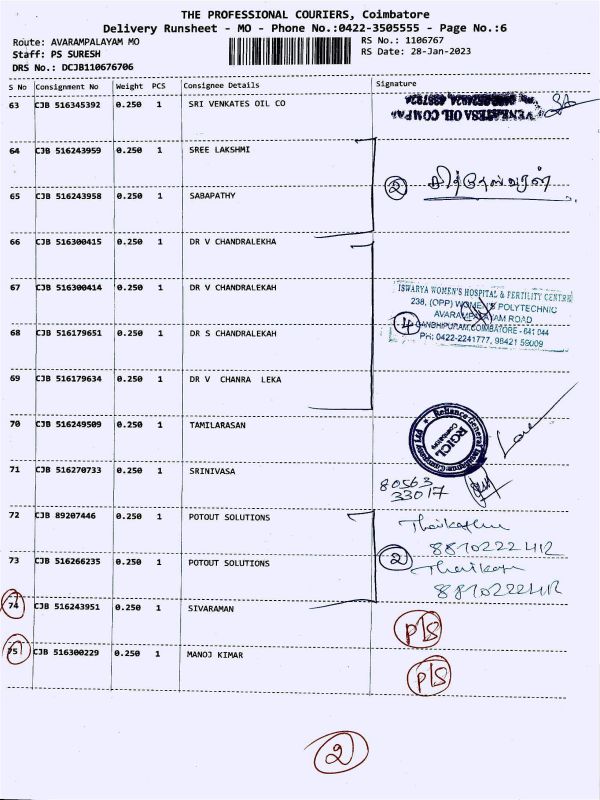 THE PROFESSIONAL COURIERS, Coimbatore
Delivery Runsheet - MO - Phone No.:0422-3505555 - Page No.:6
Route: AVARAMPALAYAM MO
RS No.: 1106767
Staff: PS SURESH
RS Date: 28-Jan-2023
DRS No.: DCJB110676706
S No Consignment No Weight PCS Consignee Details Signature
63 CJB 516345392 0.250 1 SRI VENKATES OIL CO
VENKATESA OIL COMPAN
64 CJB 516243959 0.250 1 SREE LAKSHMI
2
65 CJB 516243958 0.250 1 SABAPATHY
66 CJB 516300415 0.250 1 DR V CHANDRALEKHA
67 CJB 516300414 0.250 1 DR V CHANDRALEKAH
ISWARYA WOMEN'S HOSPITAL & FERTILITY CENTRE
238, (OPP) WOMEN'S POLYTECHNIC
AVARAMPALAYAM ROAD
4 GANDHIPURAM, COIMBATORE - 641 044
PH: 0422-2241777, 98421 59009
68 CJB 516179651 0.250 1 DR S CHANDRALEKAH
69 CJB 516179634 0.250 1 DR V CHANRA LEKA
70 CJB 516249509 0.250 1 TAMILARASAN
Reliance General Insurance Company Ltd
RGICL
COIMBATORE
71 CJB 516270733 0.250 1 SRINIVASA
80563
33017
72 CJB 89207446 0.250 1 POTOUT SOLUTIONS
8870222412
2
73 CJB 516266235 0.250 1 POTOUT SOLUTIONS
8870222412
74 CJB 516243951 0.250 1 SIVARAMAN
P/S
75 CJB 516300229 0.250 1 MANOJ KIMAR
P/S
2